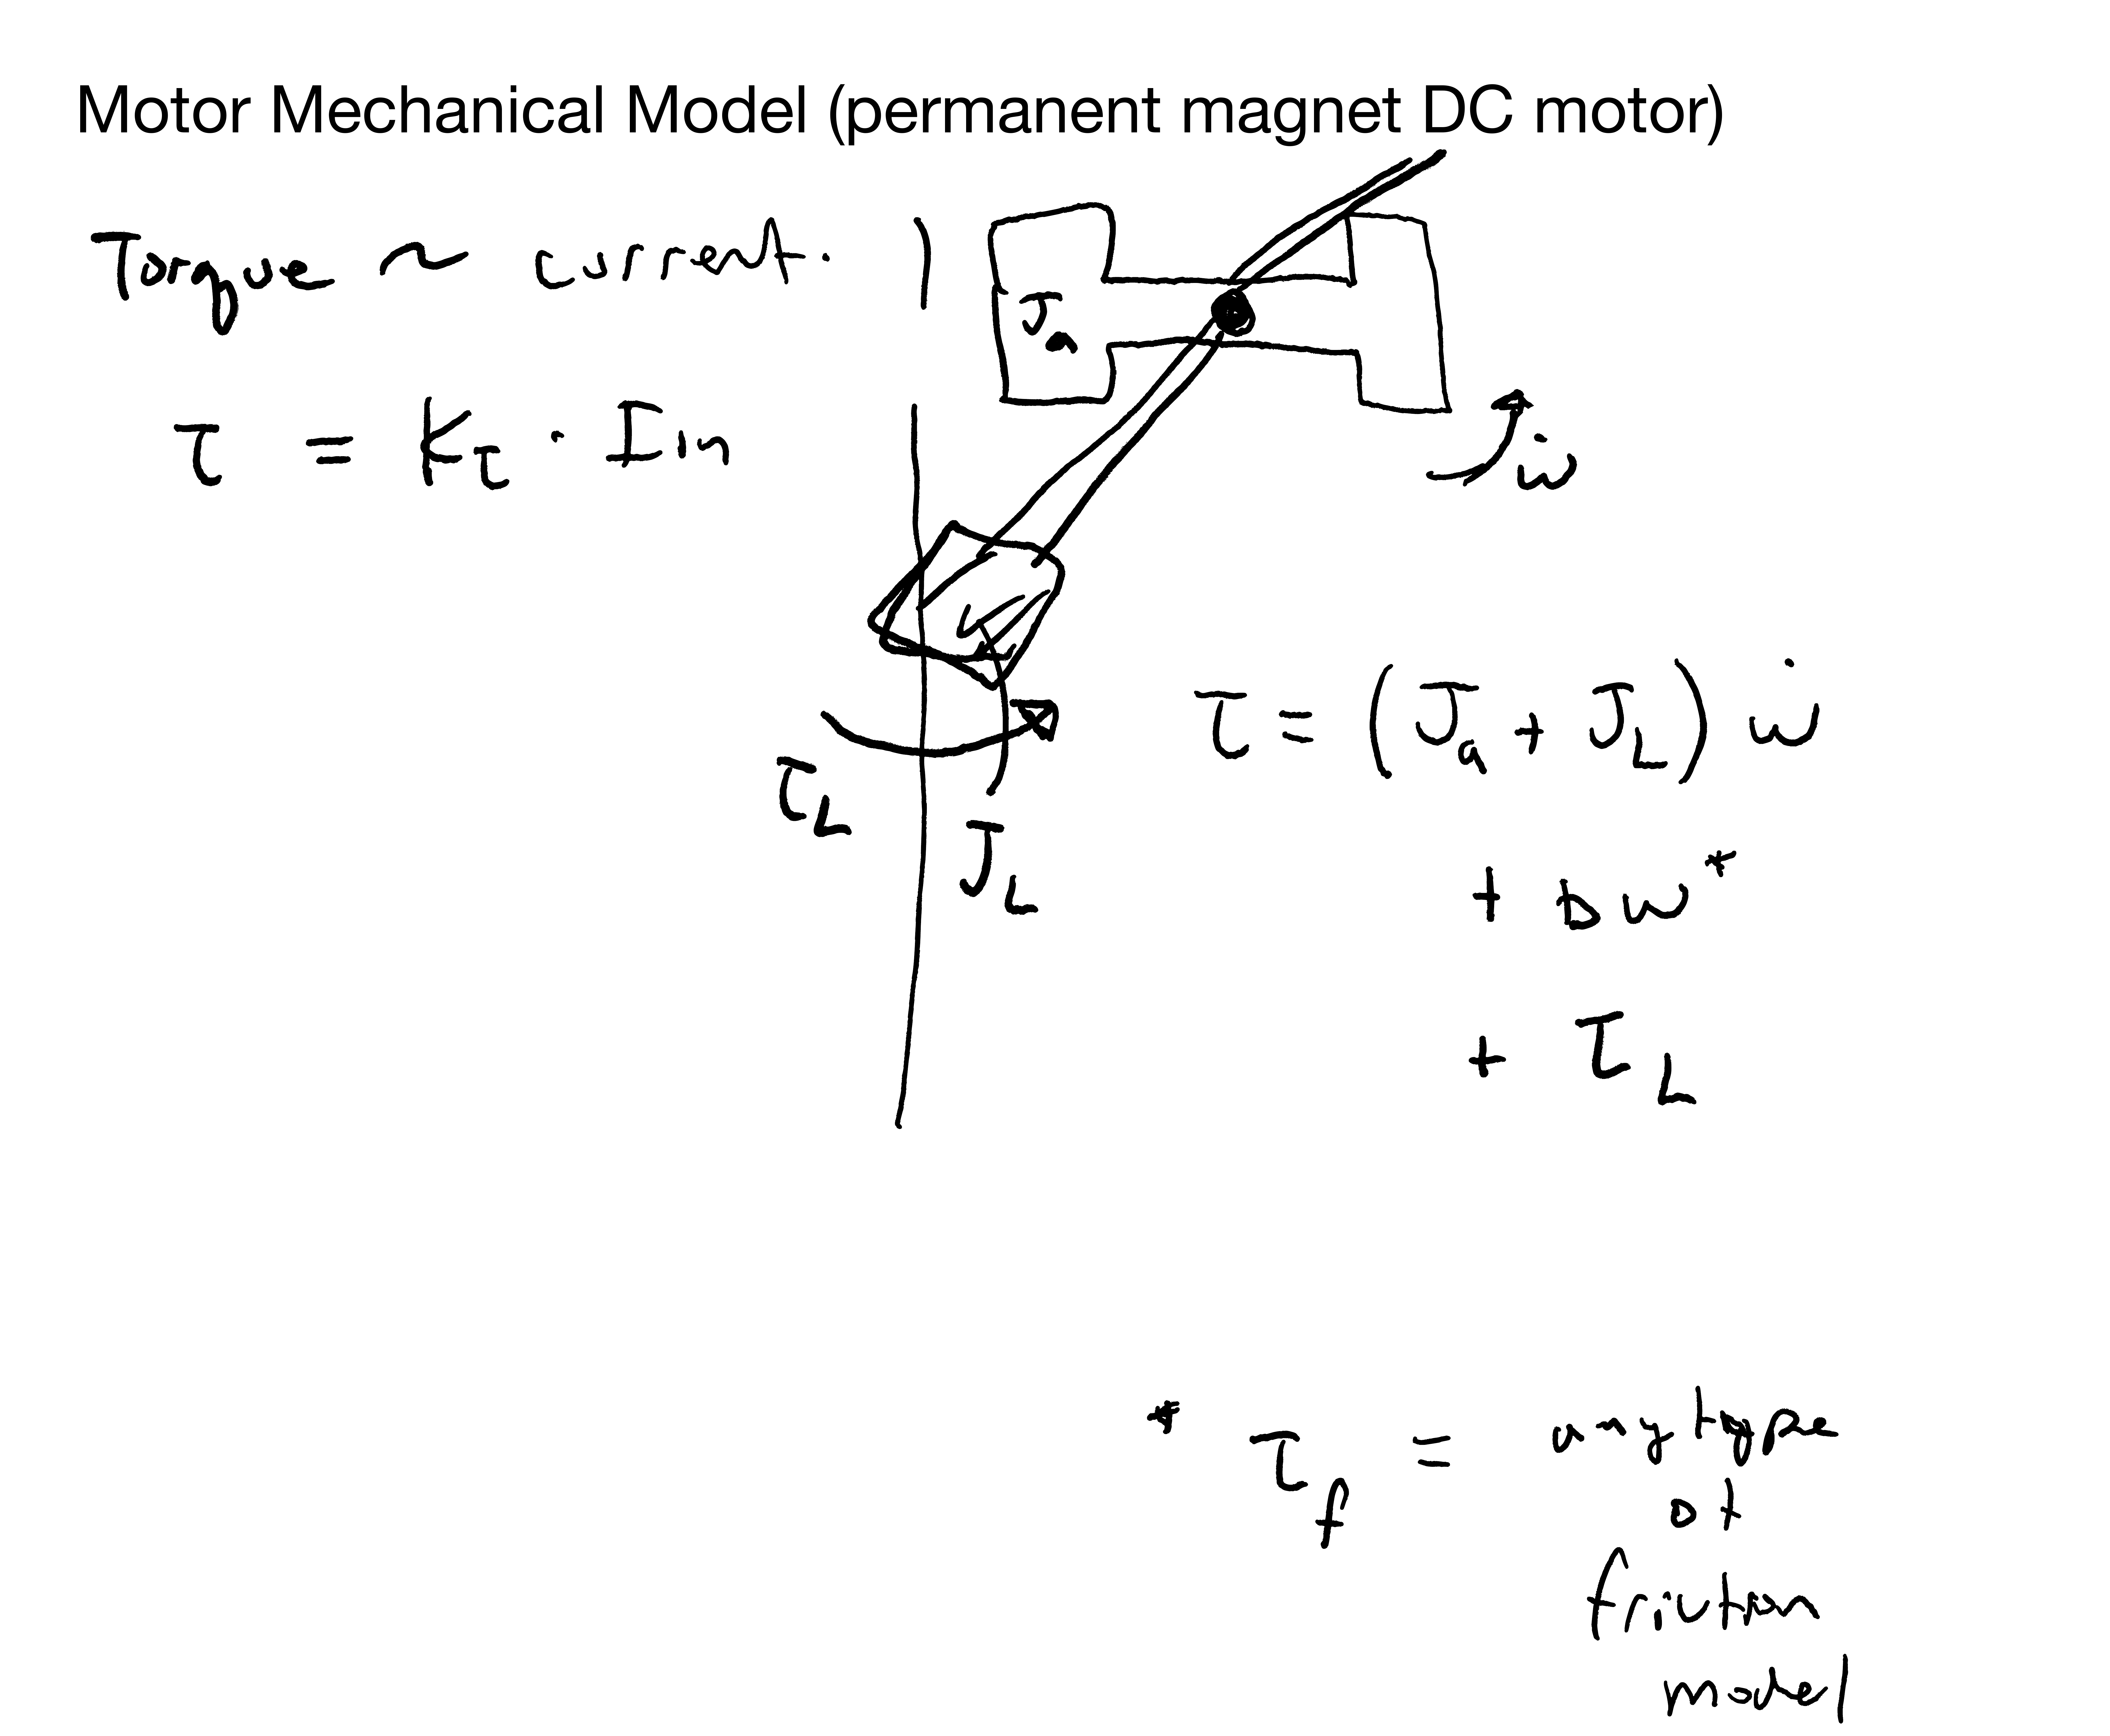 Motor Mechanical Model (permanent magnet DC motor)
Torque ~ current.
τ = Kτ · Iin
Ja
ω̇
τL
JL
τ = (Ja + JL) ω̇
+ bω*
+ τL
* τf = any type
of
friction
model